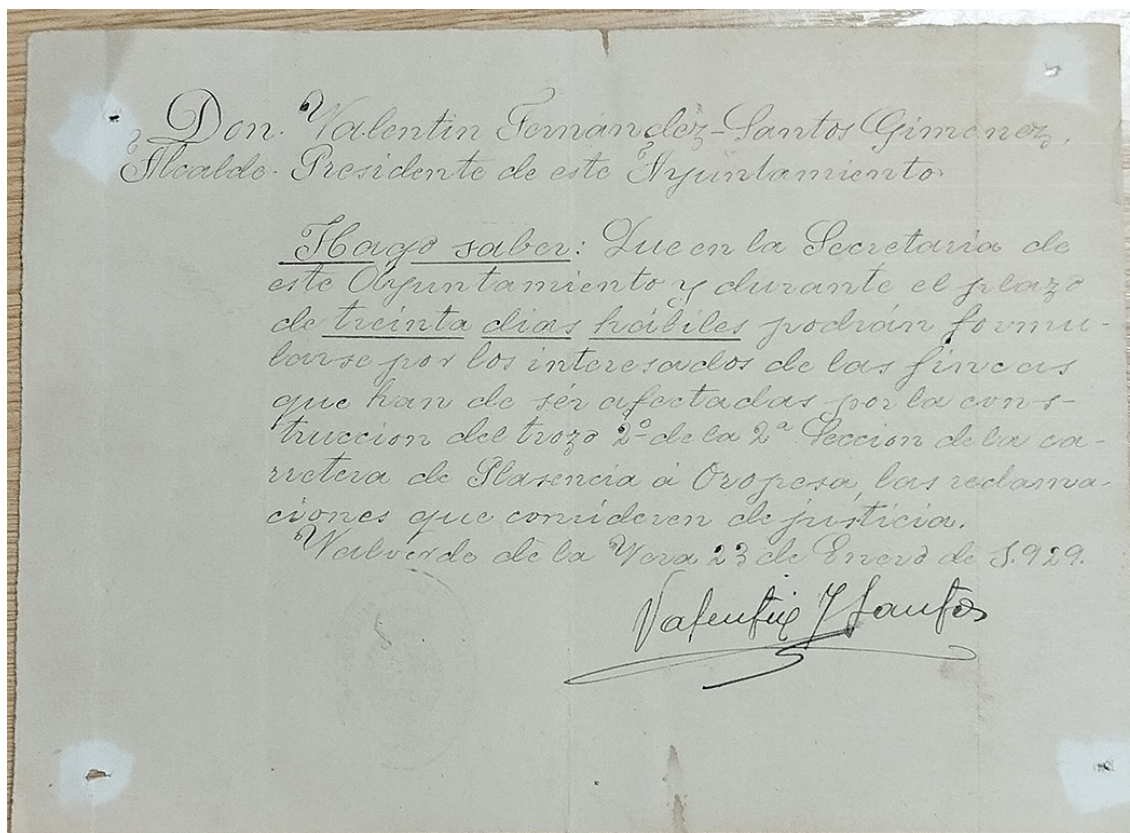 Don. Valentin Fernández-Santos Gimenez,
Alcalde-Presidente de este Ayuntamiento
Hago saber: Que en la Secretaria de
este Ayuntamiento y durante el plazo
de treinta dias hábiles podrán formu-
larse por los interesados de las fincas
que han de sér afectadas por la cons-
truccion del trozo 2º de la 2ª Seccion de la ca-
rretera de Plasencia á Oropesa, las reclama-
ciones que consideren de justicia.
Valverde de la Vera 23 de Enero de 1.929.
Valentin F Santos